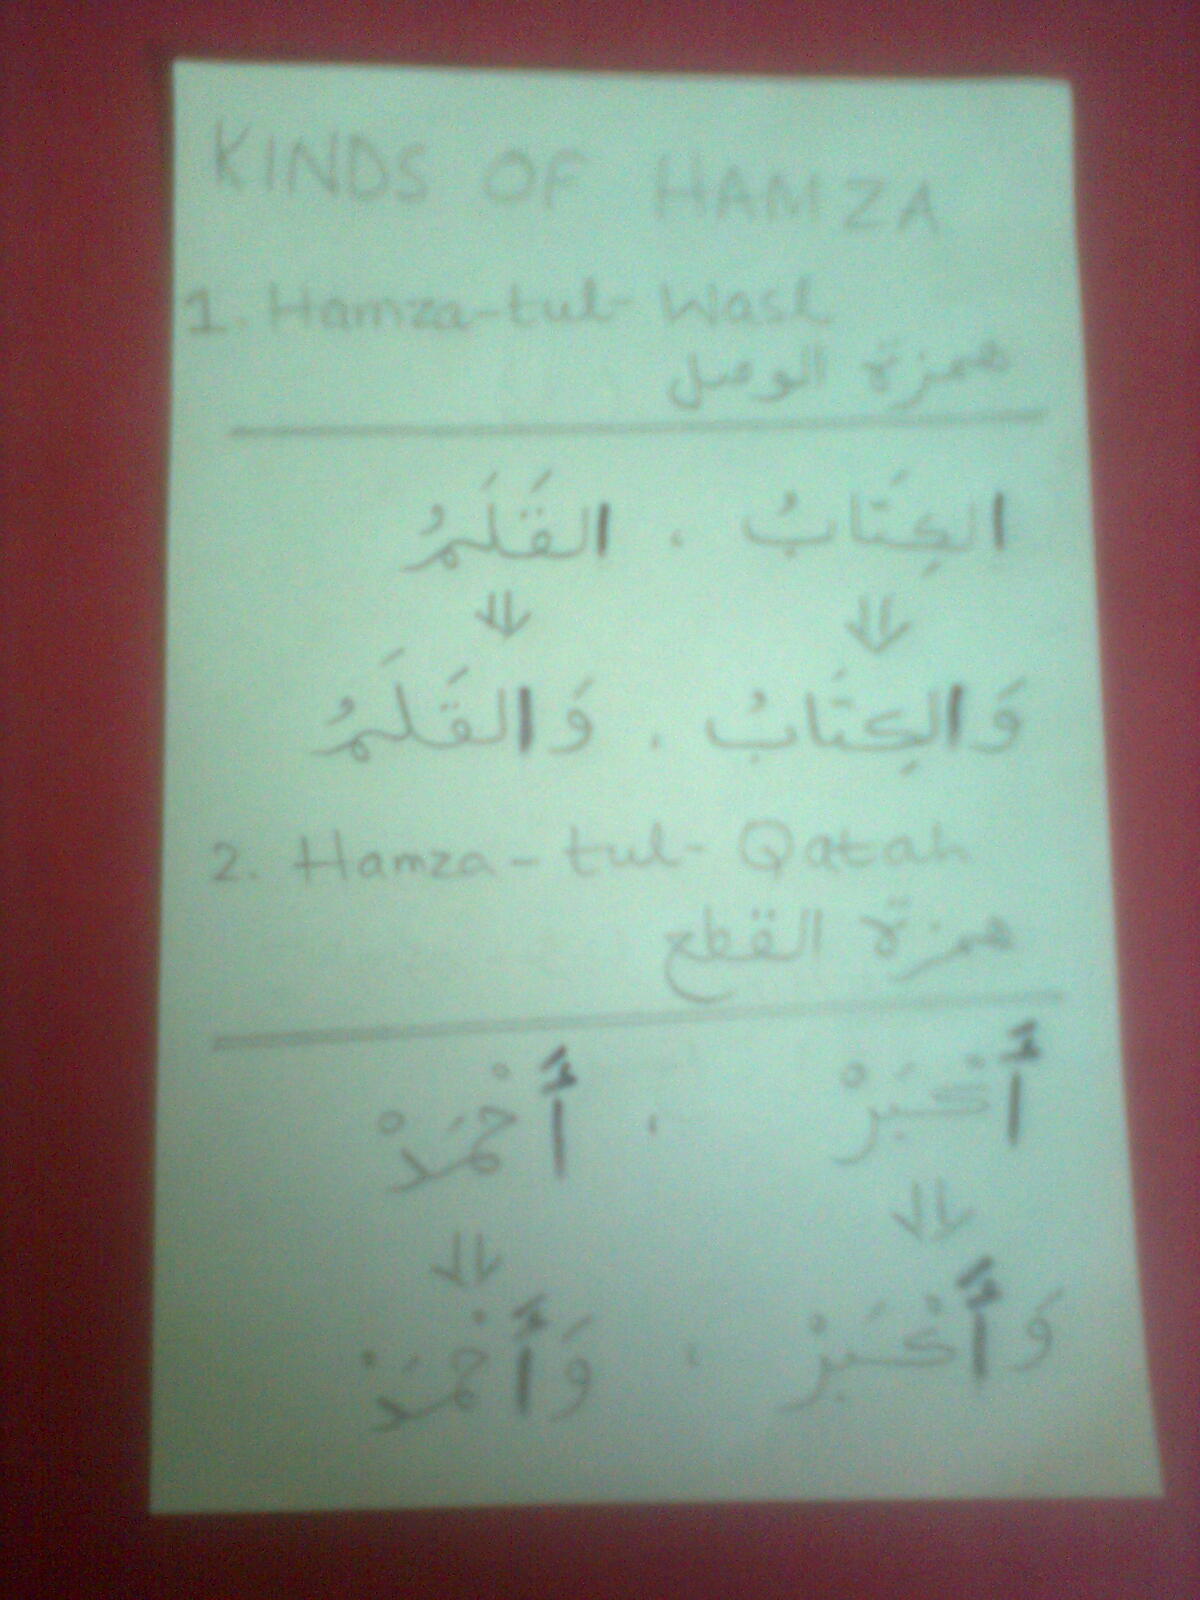 KINDS OF HAMZA
1. Hamza-tul-Wasl
همزة الوصل
الكِتَابُ ، القَلَمُ
⇓ ⇓
وَالكِتَابُ ، وَالقَلَمُ
2. Hamza-tul-Qatah
همزة القطع
أَكْبَرْ ، أَحْمَدْ
⇓ ⇓
وَأَكْبَرْ ، وَأَحْمَدْ